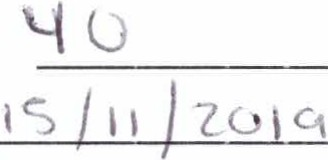 40
15/11/2019